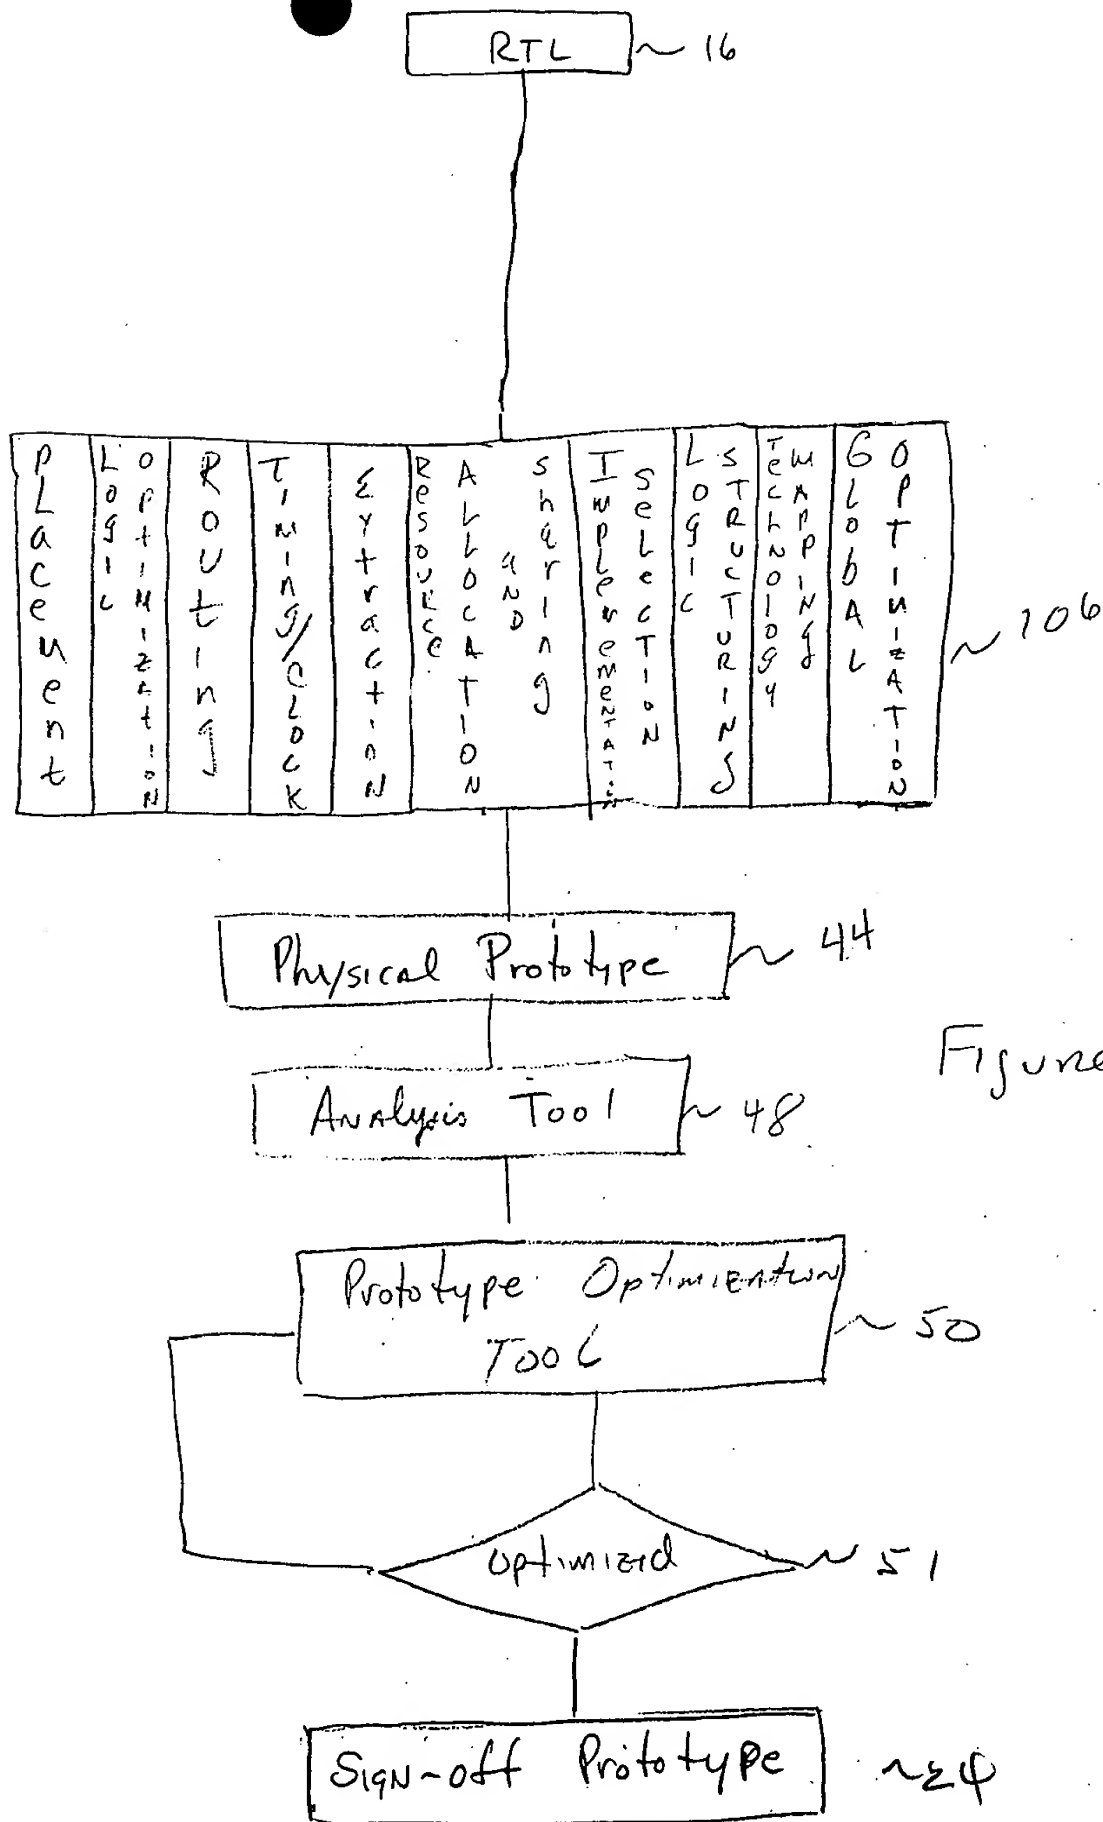 RTL ~ 16
Placement
Logic Optimization
Routing
Timing/Clock
Extraction
Resource Allocation and Sharing
Implemementatin Selection
Logic Structuring
Technology Mapping
Global Optimization
~ 106
Physical Prototype ~ 44
Figure
Analysis Tool ~ 48
Prototype Optimization
Tool ~ 50
optimized ~ 51
Sign-off Prototype